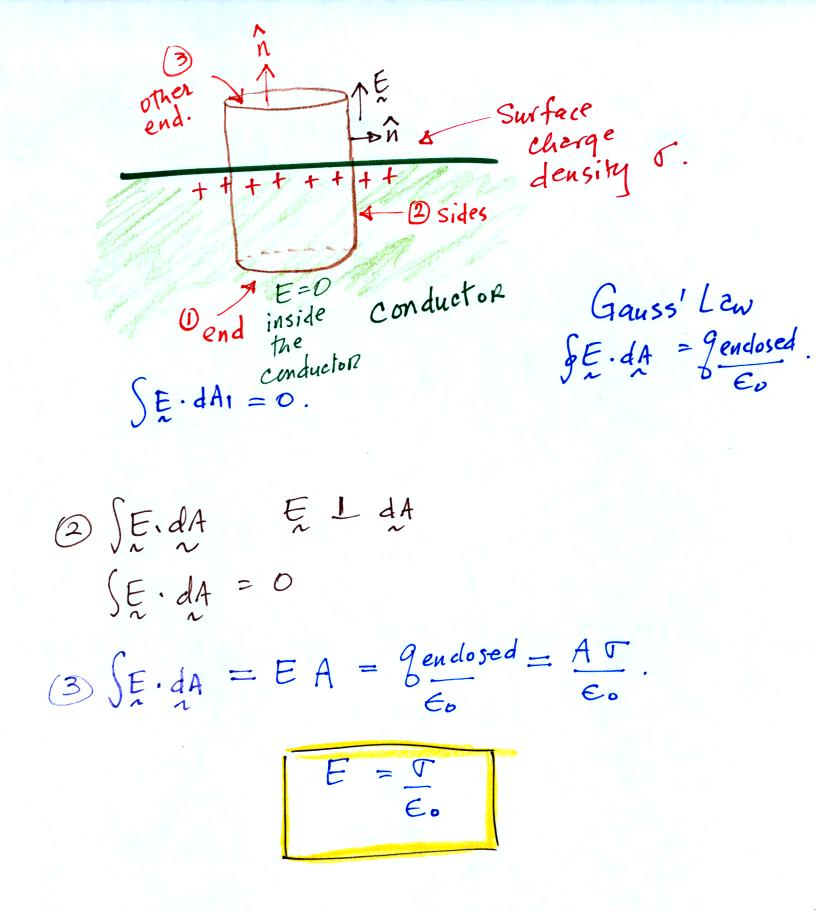 ③ other end.
n̂
E
n̂
Surface charge density σ.
+ + + + + + + +
② sides
① end
E=0 inside the conductor
conductor
Gauss' Law
∮E · dA = q enclosed / ε₀ .
∫E · dA₁ = 0.
② ∫E · dA   E ⊥ dA
∫E · dA = 0
③ ∫E · dA = E A = q enclosed / ε₀ = Aσ / ε₀ .
E = σ / ε₀